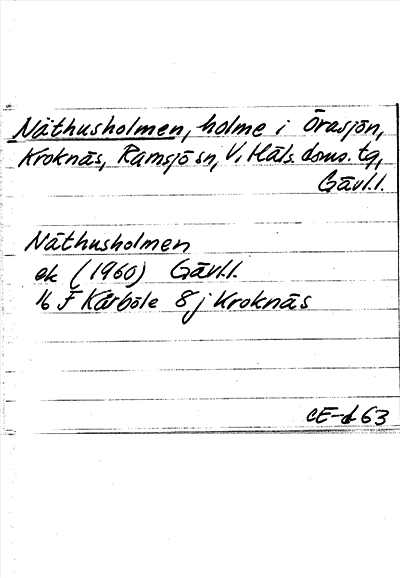 Näthusholmen, holme i Orasjön,
Kroknäs, Ramsjö sn, V. Häls. doms. tg,
Gävl.l.
Näthusholmen
ek (1960) Gävl.l.
16 F Kårböle 8 j Kroknäs
CE-d 63